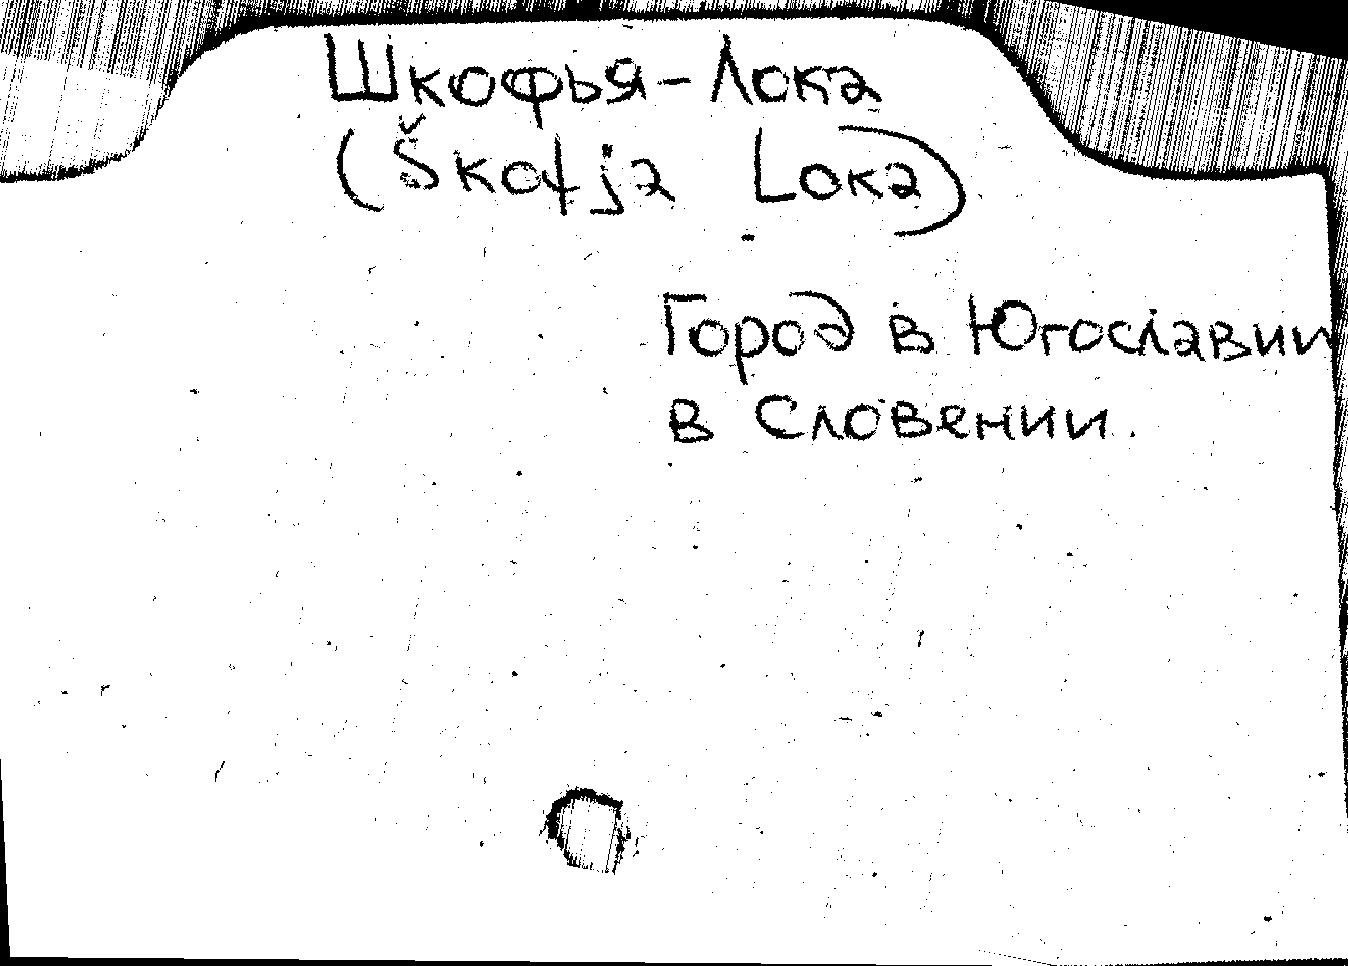 Шкофья-Лока
(Škofja Loka)
Город в Югославии
в Словении.